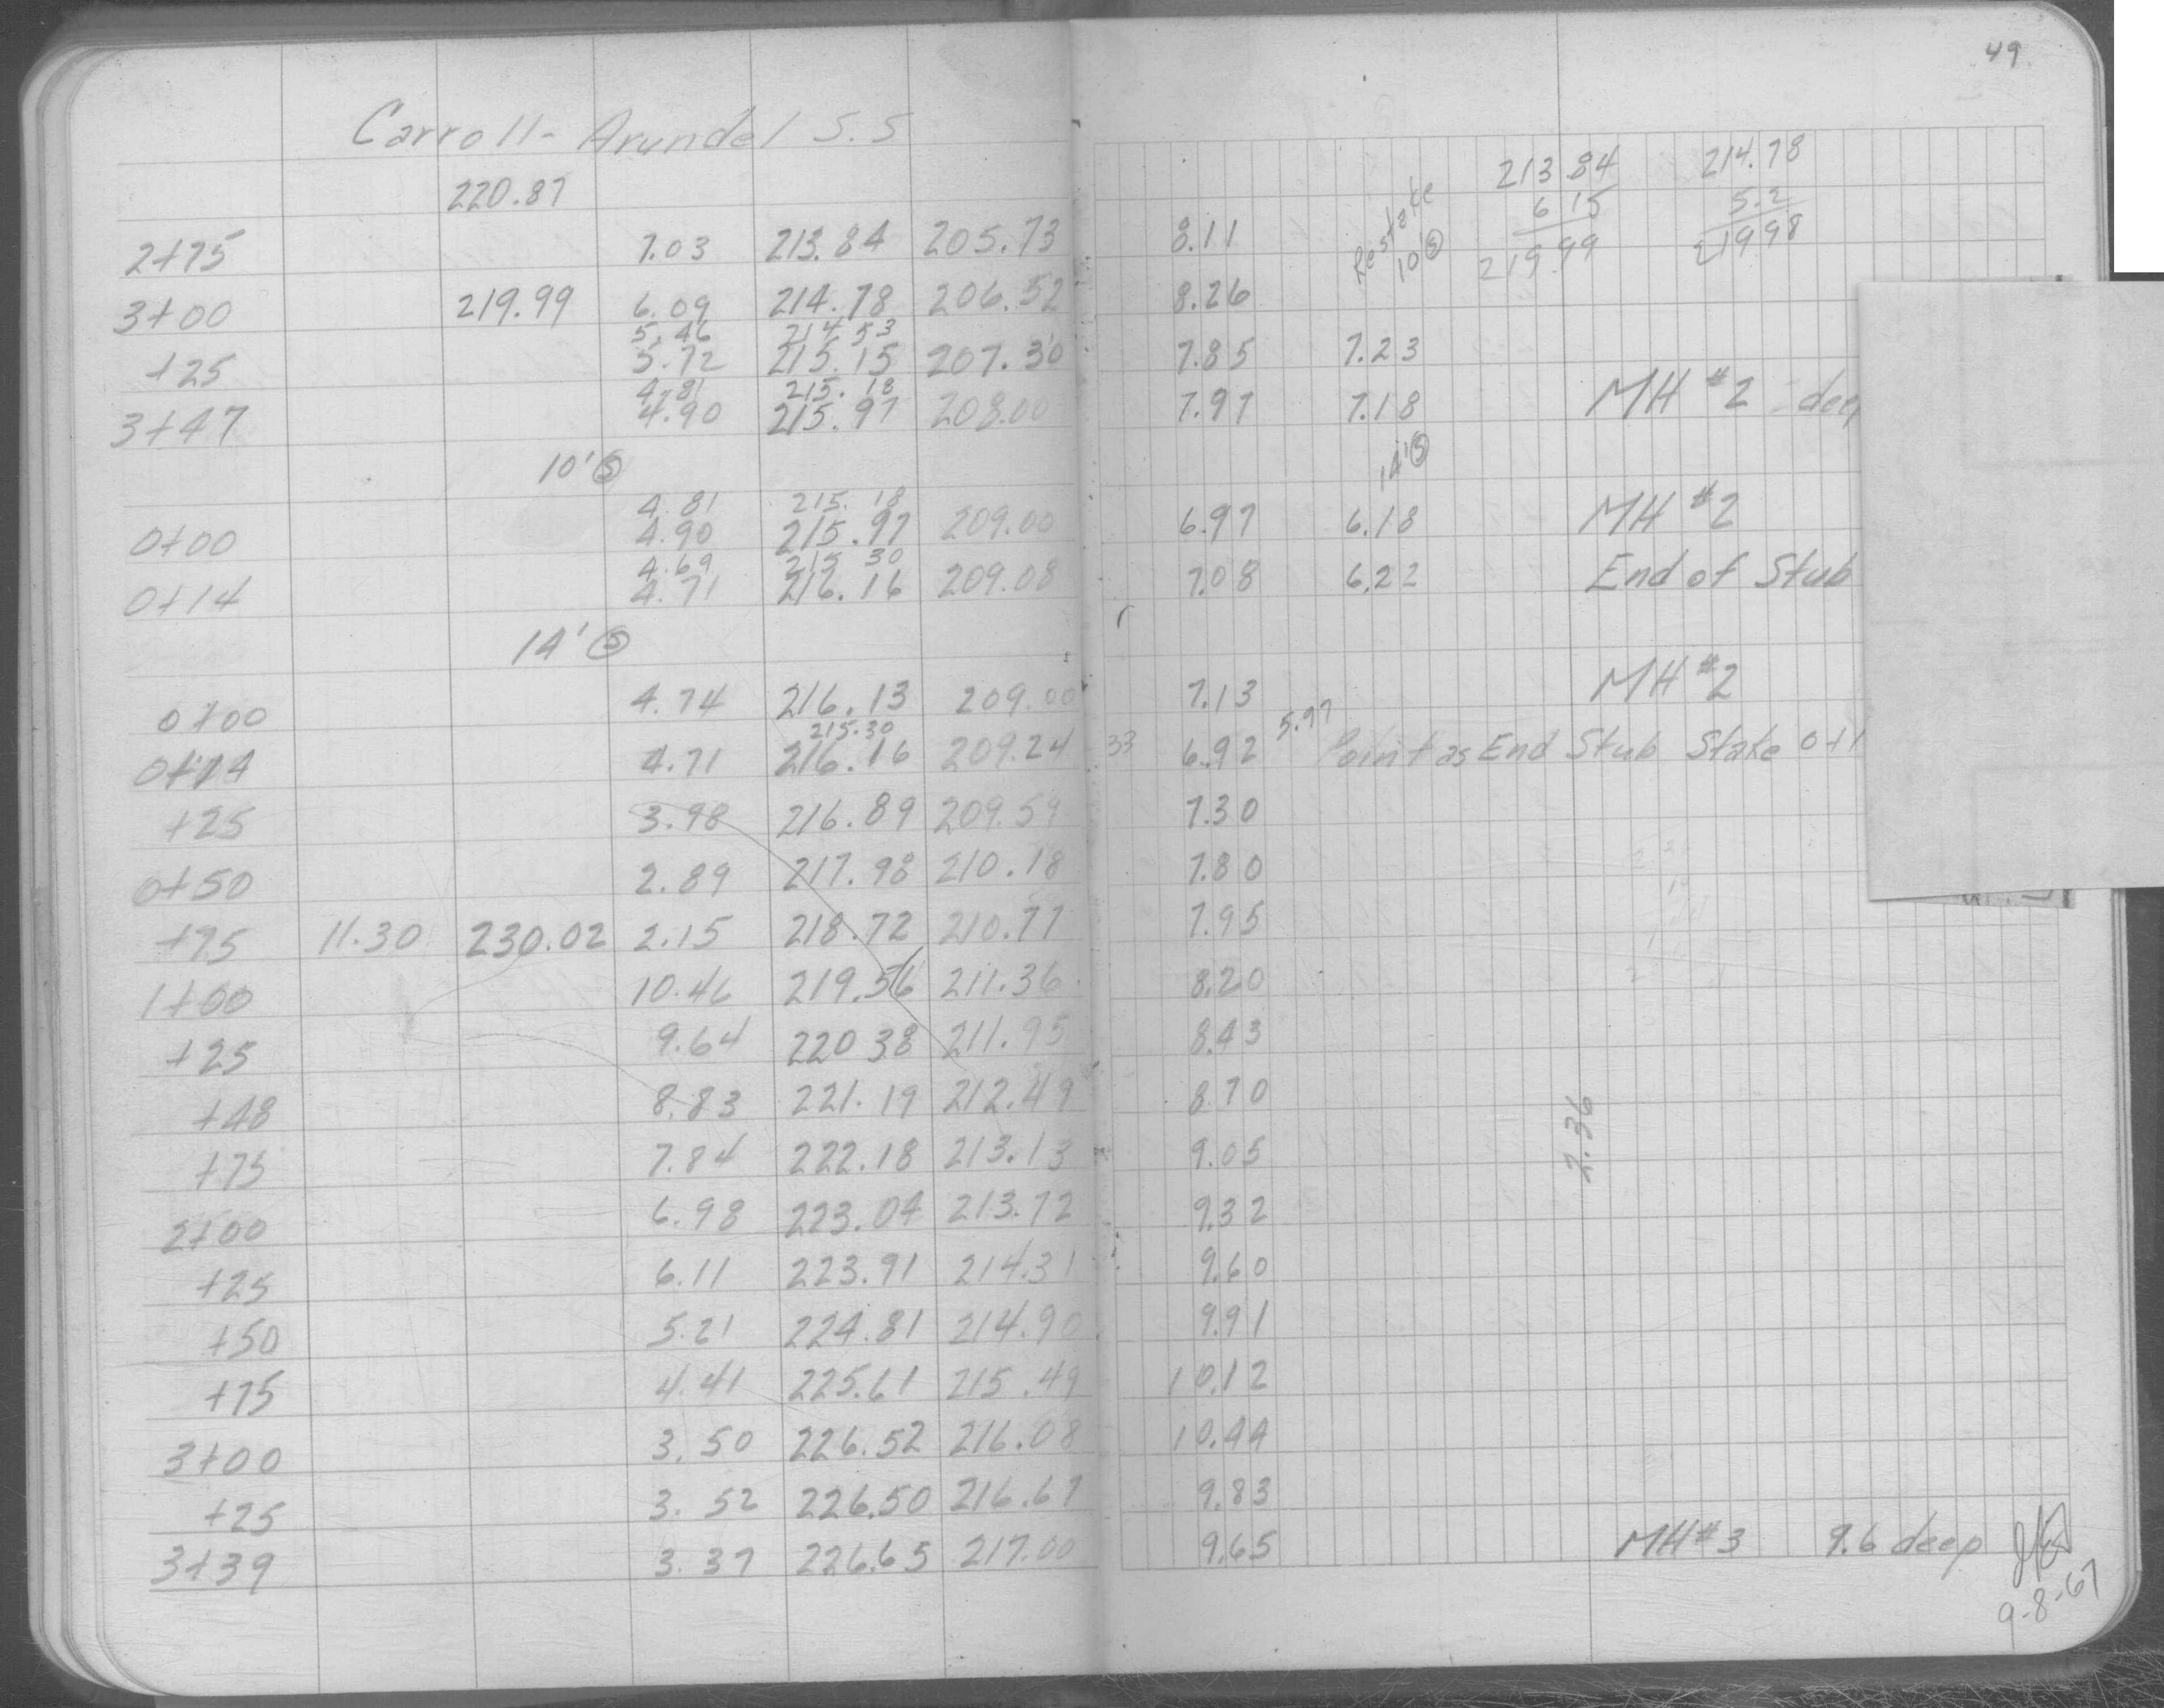 49
Carroll- Arundel S.S
220.87
213 84 214.78
6 15 5.2
219 99 21998
Restake
10' Ⓢ
2+75 7.03 213.84 205.73 8.11
3+00 219.99 6.09 214.78 206.52 8.26
5.46 214 53
+25 5.72 215.15 207.30 7.85 7.23
4.81 215.18
3+47 4.90 215.97 208.00 7.97 7.18 MH #2
10' Ⓢ 14' Ⓢ
4.81 215.18
0+00 4.90 215.97 209.00 6.97 6.18 MH #2
4.69 215 30
0+14 4.71 216.16 209.08 7.08 6.22 End of Stub
14' Ⓢ
0+00 4.74 216.13 209.00 7.13 MH #2
215.30 5.97
0+14 4.71 216.16 209.24 33 6.92 Point as End Stub Stake
+25 3.98 216.89 209.59 7.30
0+50 2.89 217.98 210.18 7.80
+75 11.30 230.02 2.15 218.72 210.77 7.95
1+00 10.46 219.56 211.36 8.20
+25 9.64 220 38 211.95 8.43
+48 8.83 221.19 212.49 8.70
2.36
+75 7.84 222.18 213.13 9.05
2+00 6.98 223.04 213.72 9.32
+25 6.11 223.91 214.31 9.60
+50 5.21 224.81 214.90 9.91
+75 4.41 225.61 215.49 10.12
3+00 3.50 226.52 216.08 10.44
+25 3.52 226.50 216.67 9.83
3+39 3.37 226.65 217.00 9.65 MH#3 9.6 deep
9-8-67